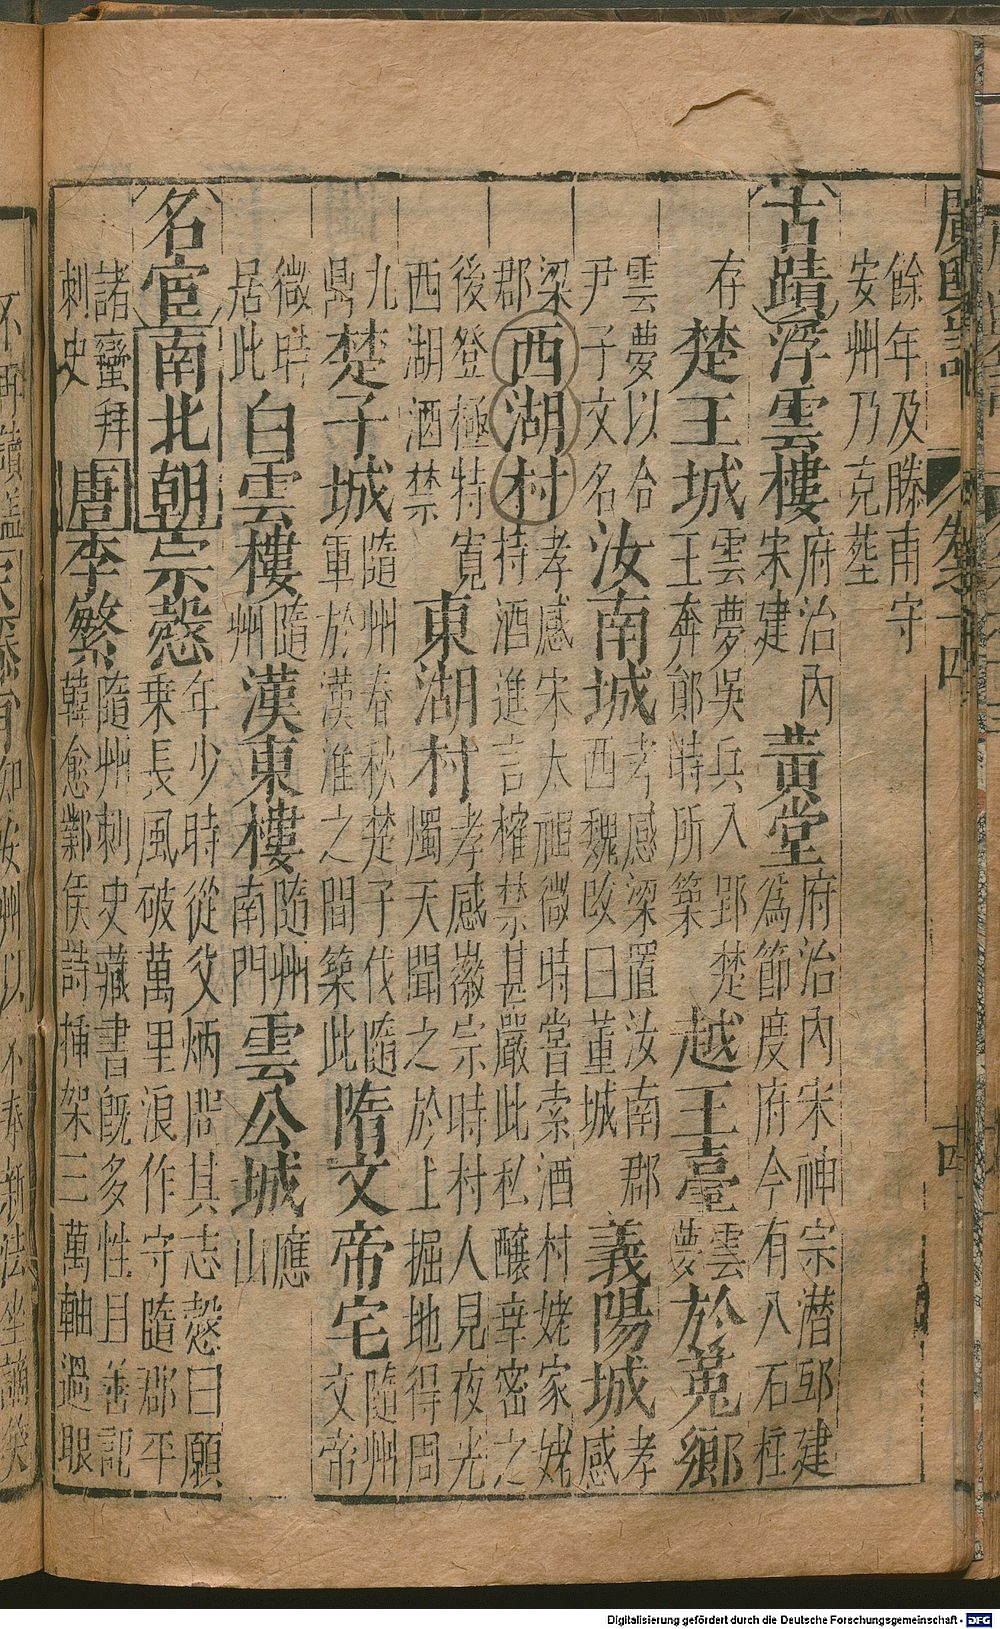 廣輿記 卷十四
餘年及滕甫守
安州乃克塟
古蹟 浮雲樓 府治內宋建 黃堂 府治內宋神宗潛邸建為節度府今有八石柱
存 楚王城 雲夢吳兵入郢楚王奔鄖時所築 越王臺 雲夢 於菟鄉
雲夢以合尹子文名 汝南城 孝感梁置汝南郡西魏改曰董城 義陽城 孝感
梁郡 西湖村 孝感宋太祖微時嘗索酒村姥家姥持酒進言榷禁甚嚴此私釀幸密之
後登極特寬西湖酒禁 東湖村 孝感徽宗時村人見夜光燭天聞之於上掘地得周
九鼎 楚子城 隨州春秋楚子伐隨軍於漢淮之間築此 隋文帝宅 隨州文帝
微時居此 白雲樓 隨州 漢東樓 隨州南門 雲公城 應山
名宦 南北朝 宗愨 年少時從父炳問其志愨曰願乗長風破萬里浪作守隨郡平
諸蠻拜刺史 唐 李繁 隨州刺史藏書既多性且善記韓愈鄴侯詩挿架三萬軸過眼
知安州以不奉新法坐謫
Digitalisierung gefördert durch die Deutsche Forschungsgemeinschaft - DFG